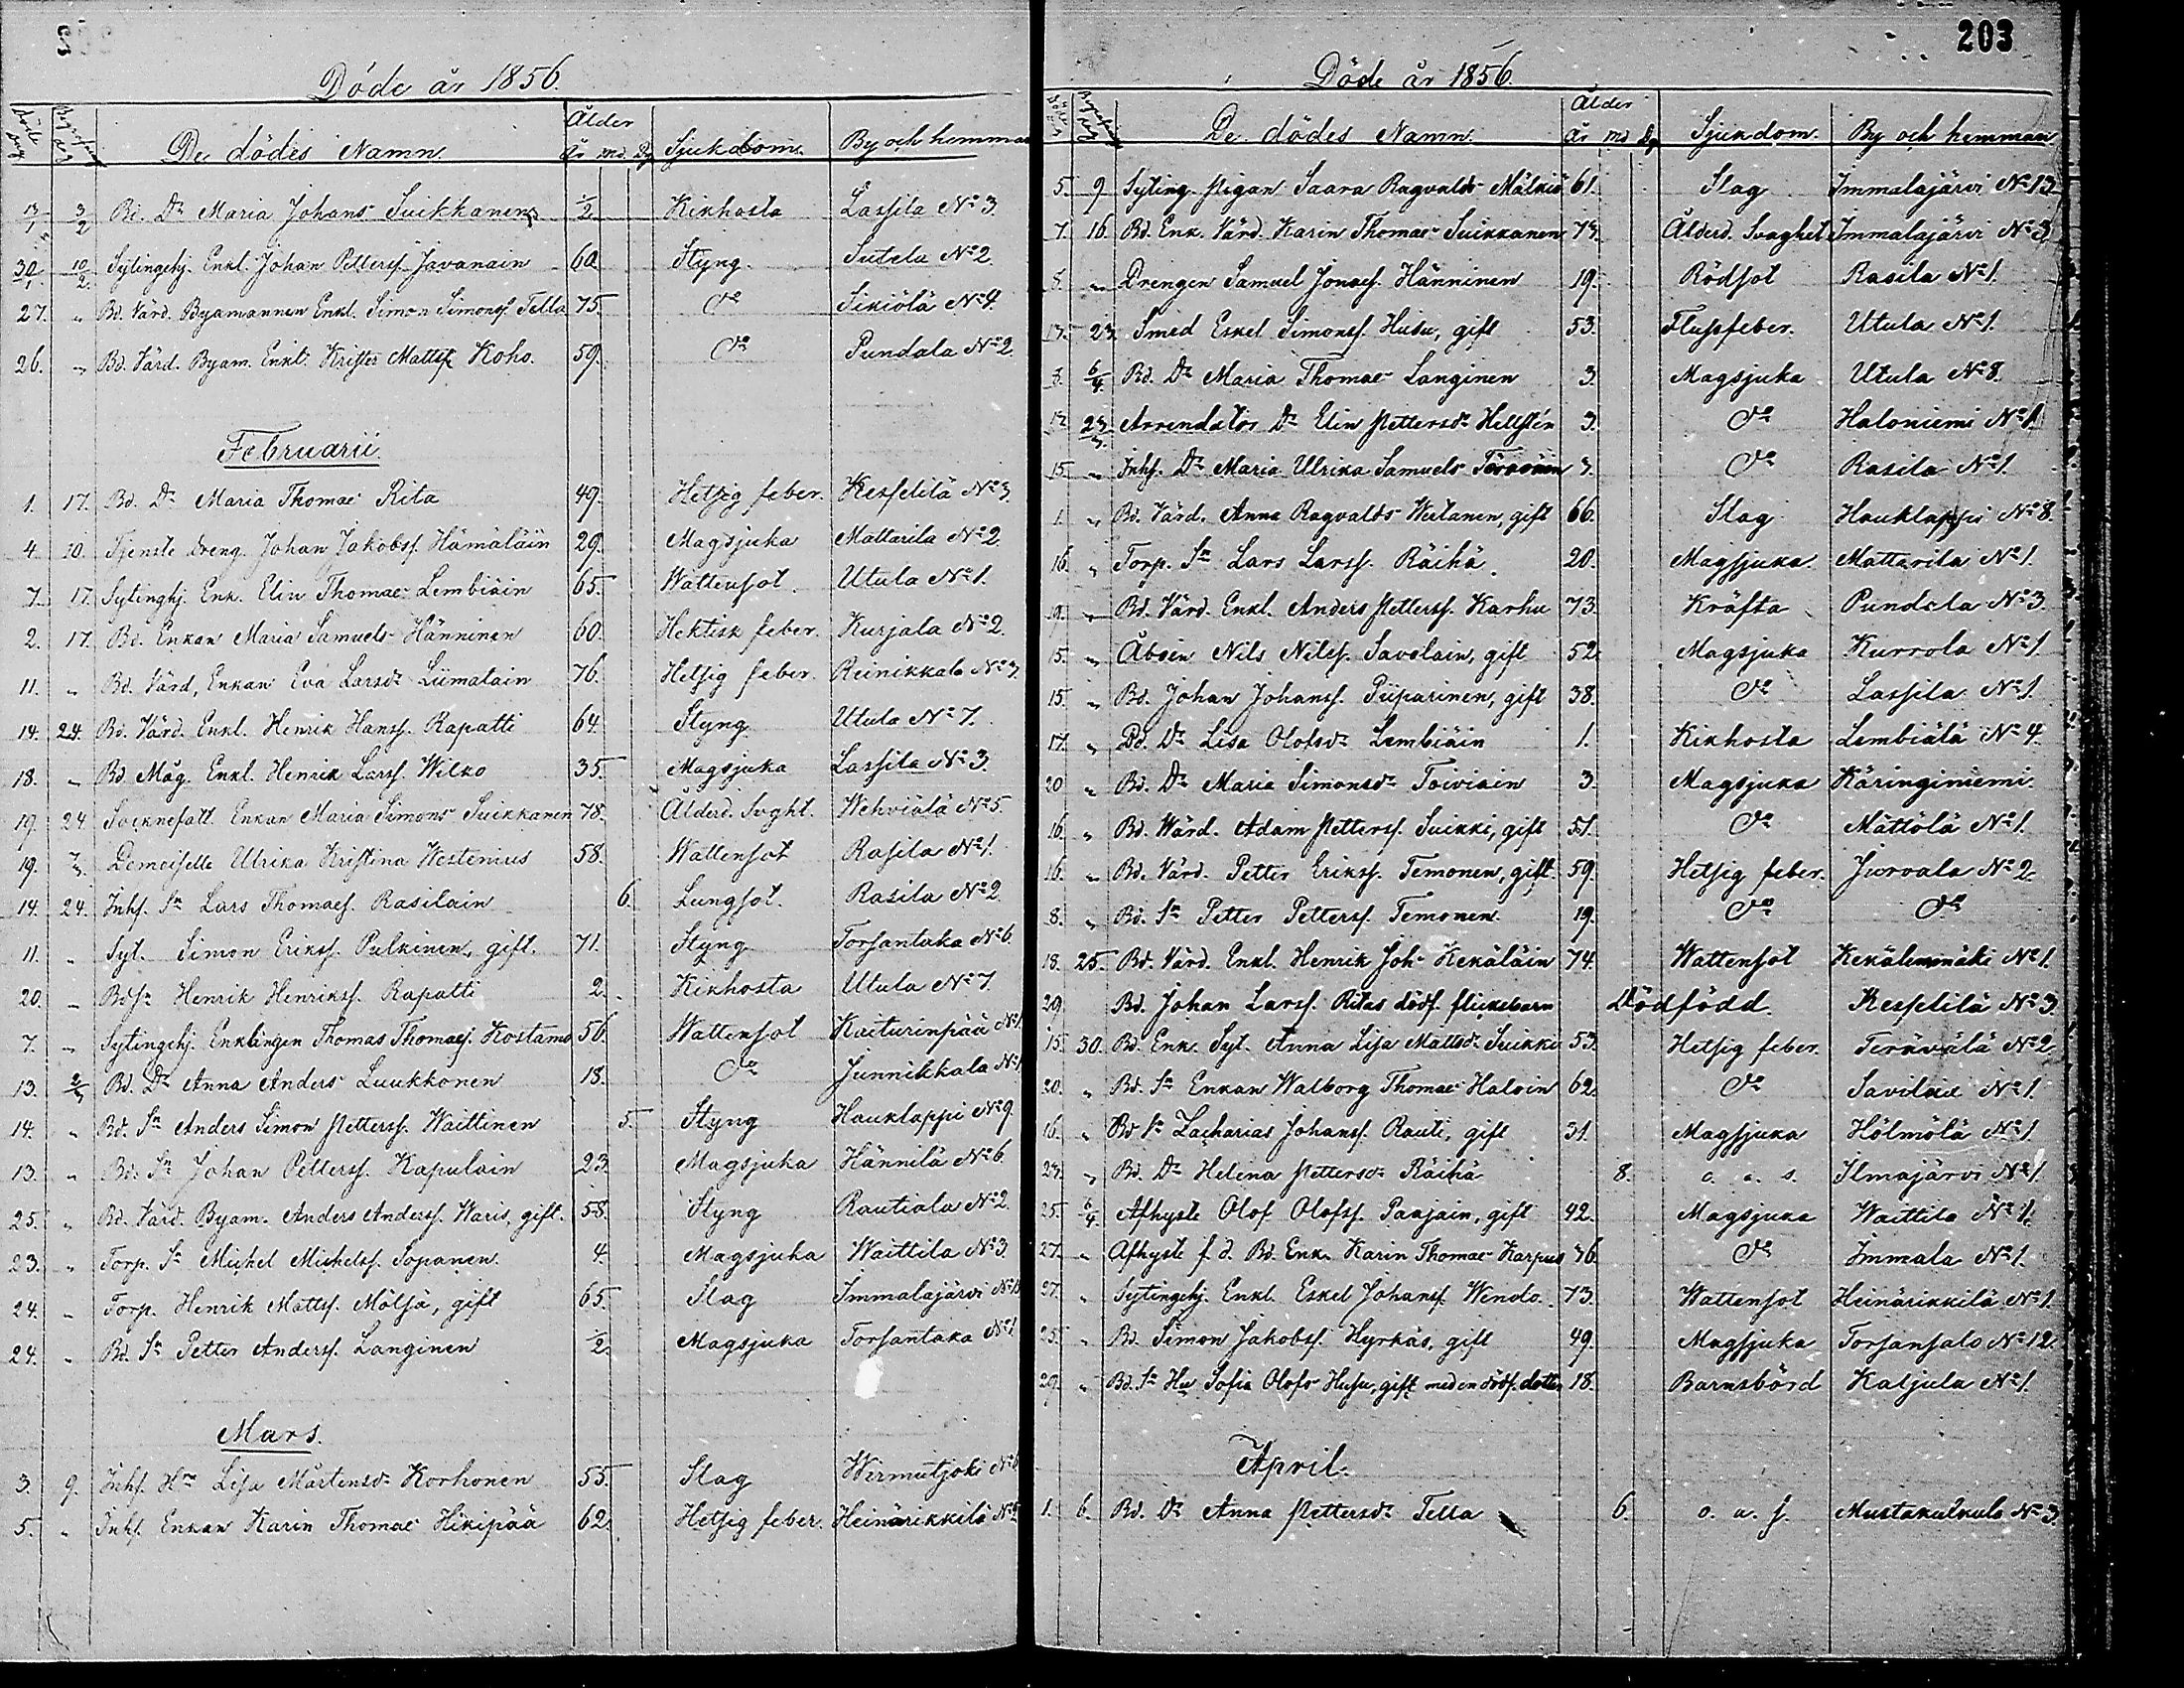 Döde år 1856.
Döde dag Begrafn. dag De dödes Namn. Ålder år md. Dg Sjukdom. By och hemman
13/1 3/2 Bd. Dr Maria Johans Suikkanen 1/2 Kikhosta Lassila No 3.
30/1 10/2 Sytingehj. Enkl. Johan Petterss. Javanain 60 Styng. Sutela No 2.
27. " Bd. Värd. Byamannen Enkl. Simon Simonss. Tella 75 do Sikiölä No 4.
26. " Bd. Värd. Byam. Enkl. Krister Mattss. Koho. 59. do Pundala No 2.
Februarii.
1. 17. Bd. Dr Maria Thomae Rita 49. Hetsig feber. Kesselilä No 3.
4. 10. Tjenste dreng. Johan Jakobss. Hämäläin 29. Magsjuka Mattarila No 2.
7. 17. Sytinghj. Enk. Elin Thomae Lembiäin 65. Wattensot. Utula No 1.
2. 17. Bd. Enkan Maria Samuels Hänninen 60. Hektisk feber. Kurjala No 2.
11. " Bd. Värd, Enkan Eva Larsdr Liimatain 76. Hetsig feber. Reinikkala No 3.
14. 24. Bd. Värd. Enkl. Henrik Hanss. Rapatti 64. Styng Utula No 7.
18. " Bd. Måg. Enkl. Henrik Larss. Wilko 35. Magsjuka Lassila No 3.
19. 24. Socknefatt. Enkan Maria Simons Suikkanen 78. Ålderd. Svght. Wehviälä No 5.
19. 2/3. Demoiselle Ulrika Kristina Westenius 58. Wattensot Rasila No 1.
14. 24. Inhs. Sn Lars Thomaes. Rasilain 6. Lungsot. Rasila No 2.
11. " Syt. Simon Erikss. Pulkinen, gift. 71. Styng Torsantaka No 6.
20. " Bds. Henrik Henrikss. Rapatti 2. Kikhosta Utula No 7.
7. " Sytingehj. Enklingen Thomas Thomaes. Kostamo 56. Wattensot Kaiturinpää No 1.
13. 2/3 Bd. Dr Anna Anders Luukkonen 18. do Junnikkala No 1.
14. " Bd. Sn Anders Simon Petterss. Waittinen 5. Styng Hauklappi No 9.
13. " Bd. Sn Johan Petterss. Kapulain 23. Magsjuka Hännilä No 6.
25. " Bd. Värd. Byam. Anders Anderss. Waris, gift. 58. Styng Rautiala No 2.
23. " Torp. Sn Michel Michelss. Sopanen. 4. Magsjuka Waittila No 3.
24. " Torp. Henrik Mattss. Mölsä, gift 65. Slag Immalajärvi
24. " Bd. Sn Petter Anderss. Langinen 1/2. Magsjuka Torsantaka No 1.
Mars.
3. 9. Inhs. Hu Lisa Mårtensdr Korhonen 55. Slag Wirmutjoki No 6
5. " Inhs. Enkan Karin Thomae Hikipää 62. Hetsig feber. Heinärikkilä
203
Döde år 1856.
Döde dag Begrafn. dag De dödes Namn. Ålder år md Dg Sjukdom. By och hemman
5. 9 Syting. Pigan Saara Ragvalds Mälkiö 61. Slag Immalajärvi No 13.
7. 16. Bd. Enk. Värd. Karin Thomae Suikkanen 73. Ålderd. Svaghet Immalajärvi No 3.
8. " Drengen Samuel Jonaes. Hänninen 19. Rödsot Rasila No 1.
13. 23. Smed Eskel Simonss. Husu, gift 53. Flussfeber. Utula No 1.
8. 6/4. Bd. Dr Maria Thomae Langinen 3. Magsjuka Utula No 8.
12 23/3. Arrendator Dr Elin Pettersdr Hellstén 3. do Haloniemi No 1
15. " Inhs. Dr Maria Ulrika Samuels 3. do Rasila No 1.
1. " Bd. Värd. Anna Ragvalds Weitanen, gift 66. Slag Hauklappi No 8.
16. " Torp. Sn Lars Larss. Räihä. 20. Magsjuka Mattarila No 1.
19. " Bd. Värd. Enkl. Anders Petterss. Karhu 73. Kräfta Pundala No 3.
15. " Åboen Nils Nilss. Savolain, gift 52. Magsjuka Kurrola No 1.
15. " Bd. Johan Johanss. Piiparinen, gift 38. do Lassila No 1.
17. " Bd. Dr Lisa Olofsdr Lembiäin 1. Kikhosta Lembiälä No 4.
20 " Bd. Dr Maria Simonsdr Toiviain 3. Magsjuka Käringiniemi.
16. " Bd. Wärd. Adam Petterss. Suikki, gift 51. do Mättölä No 1.
16. " Bd. Värd. Petter Erikss. Temonen, gift. 59. Hetsig feber. Jurvala No 2.
8. " Bd. Sn Petter Petterss. Temonen. 19. do do
18. 25. Bd. Värd. Enkl. Henrik Joh. Kekäläin 74. Wattensot Kekäleenmäki No 1.
29. Bd. Johan Larss. Ritas dödf. flickebarn Dödfödd. Kesselilä No 3.
15. 30. Bd. Enk. Syt. Anna Lisa Mattsdr Suikki 53. Hetsig feber. Terävälä No 2.
20. " Bd. Sn Enkan Walborg Thomae Haloin 62. do Savilax No 1.
16. " Bd Sn Zacharias Johanss. Rauti, gift 31. Magsjuka Hölmölä No 1.
23. " Bd. Dr Helena Pettersdr Räihä 8. o. a. s. Ilmajärvi No 1.
25. 6/4. Afhyste Olof Olofss. Paajain, gift 42. Magsjuka Waittila No 1.
27. " Afhyste f. d. Bd. Enk. Karin Thomae Karpus 76. do Immala No 1.
27. " Sytingehj. Enkl. Eskel Johanss. Wendo. 73. Wattensot Heinärikkilä No 1.
25. " Bd. Simon Jakobss. Hyrkäs, gift 49. Magsjuka Torsansalo No 12.
29. " Bd. Sn Hu Sofia Olofs Husu, gift med en dödf. dotter 18. Barnsbörd Katjula No 1.
April.
1. 6. Bd. Dr Anna Pettersdr Tella 6. o. a. s. Mustakulkula No 3.